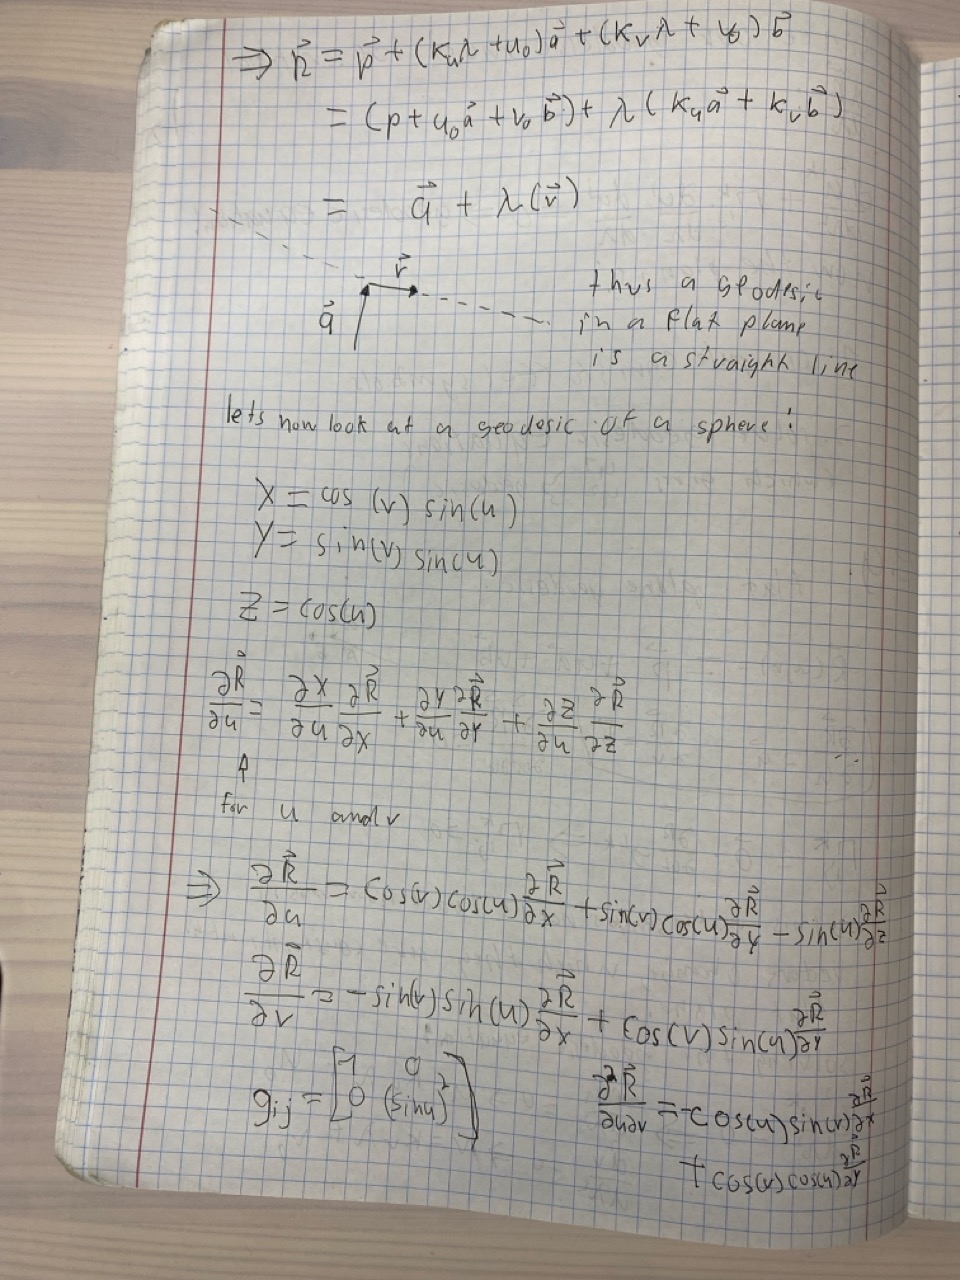 ⇒ R⃗ = p⃗ + (kᵤλ + u₀)a⃗ + (kᵥλ + v₀)b⃗
= (p + u₀a⃗ + v₀b⃗) + λ(kᵤa⃗ + kᵥb⃗)
= q⃗ + λ(v⃗)
r⃗
q⃗
thus a geodesic
in a flat plane
is a straight line
lets now look at a geodesic of a sphere:
X = cos(v) sin(u)
Y = sin(v) sin(u)
Z = cos(u)
∂R⃗/∂u = ∂X/∂u ∂R⃗/∂X + ∂Y/∂u ∂R⃗/∂Y + ∂Z/∂u ∂R⃗/∂Z
↑
for u and v
⇒ ∂R⃗/∂u = cos(v)cos(u) ∂R⃗/∂X + sin(v)cos(u) ∂R⃗/∂Y − sin(u) ∂R⃗/∂Z
∂R⃗/∂v = −sin(v)sin(u) ∂R⃗/∂X + cos(v)sin(u) ∂R⃗/∂Y
gᵢⱼ = [1 0
0 (sin u)²]
∂²R⃗/∂u∂v = −cos(u)sin(v) ∂R⃗/∂X
+ cos(v)cos(u) ∂R⃗/∂Y